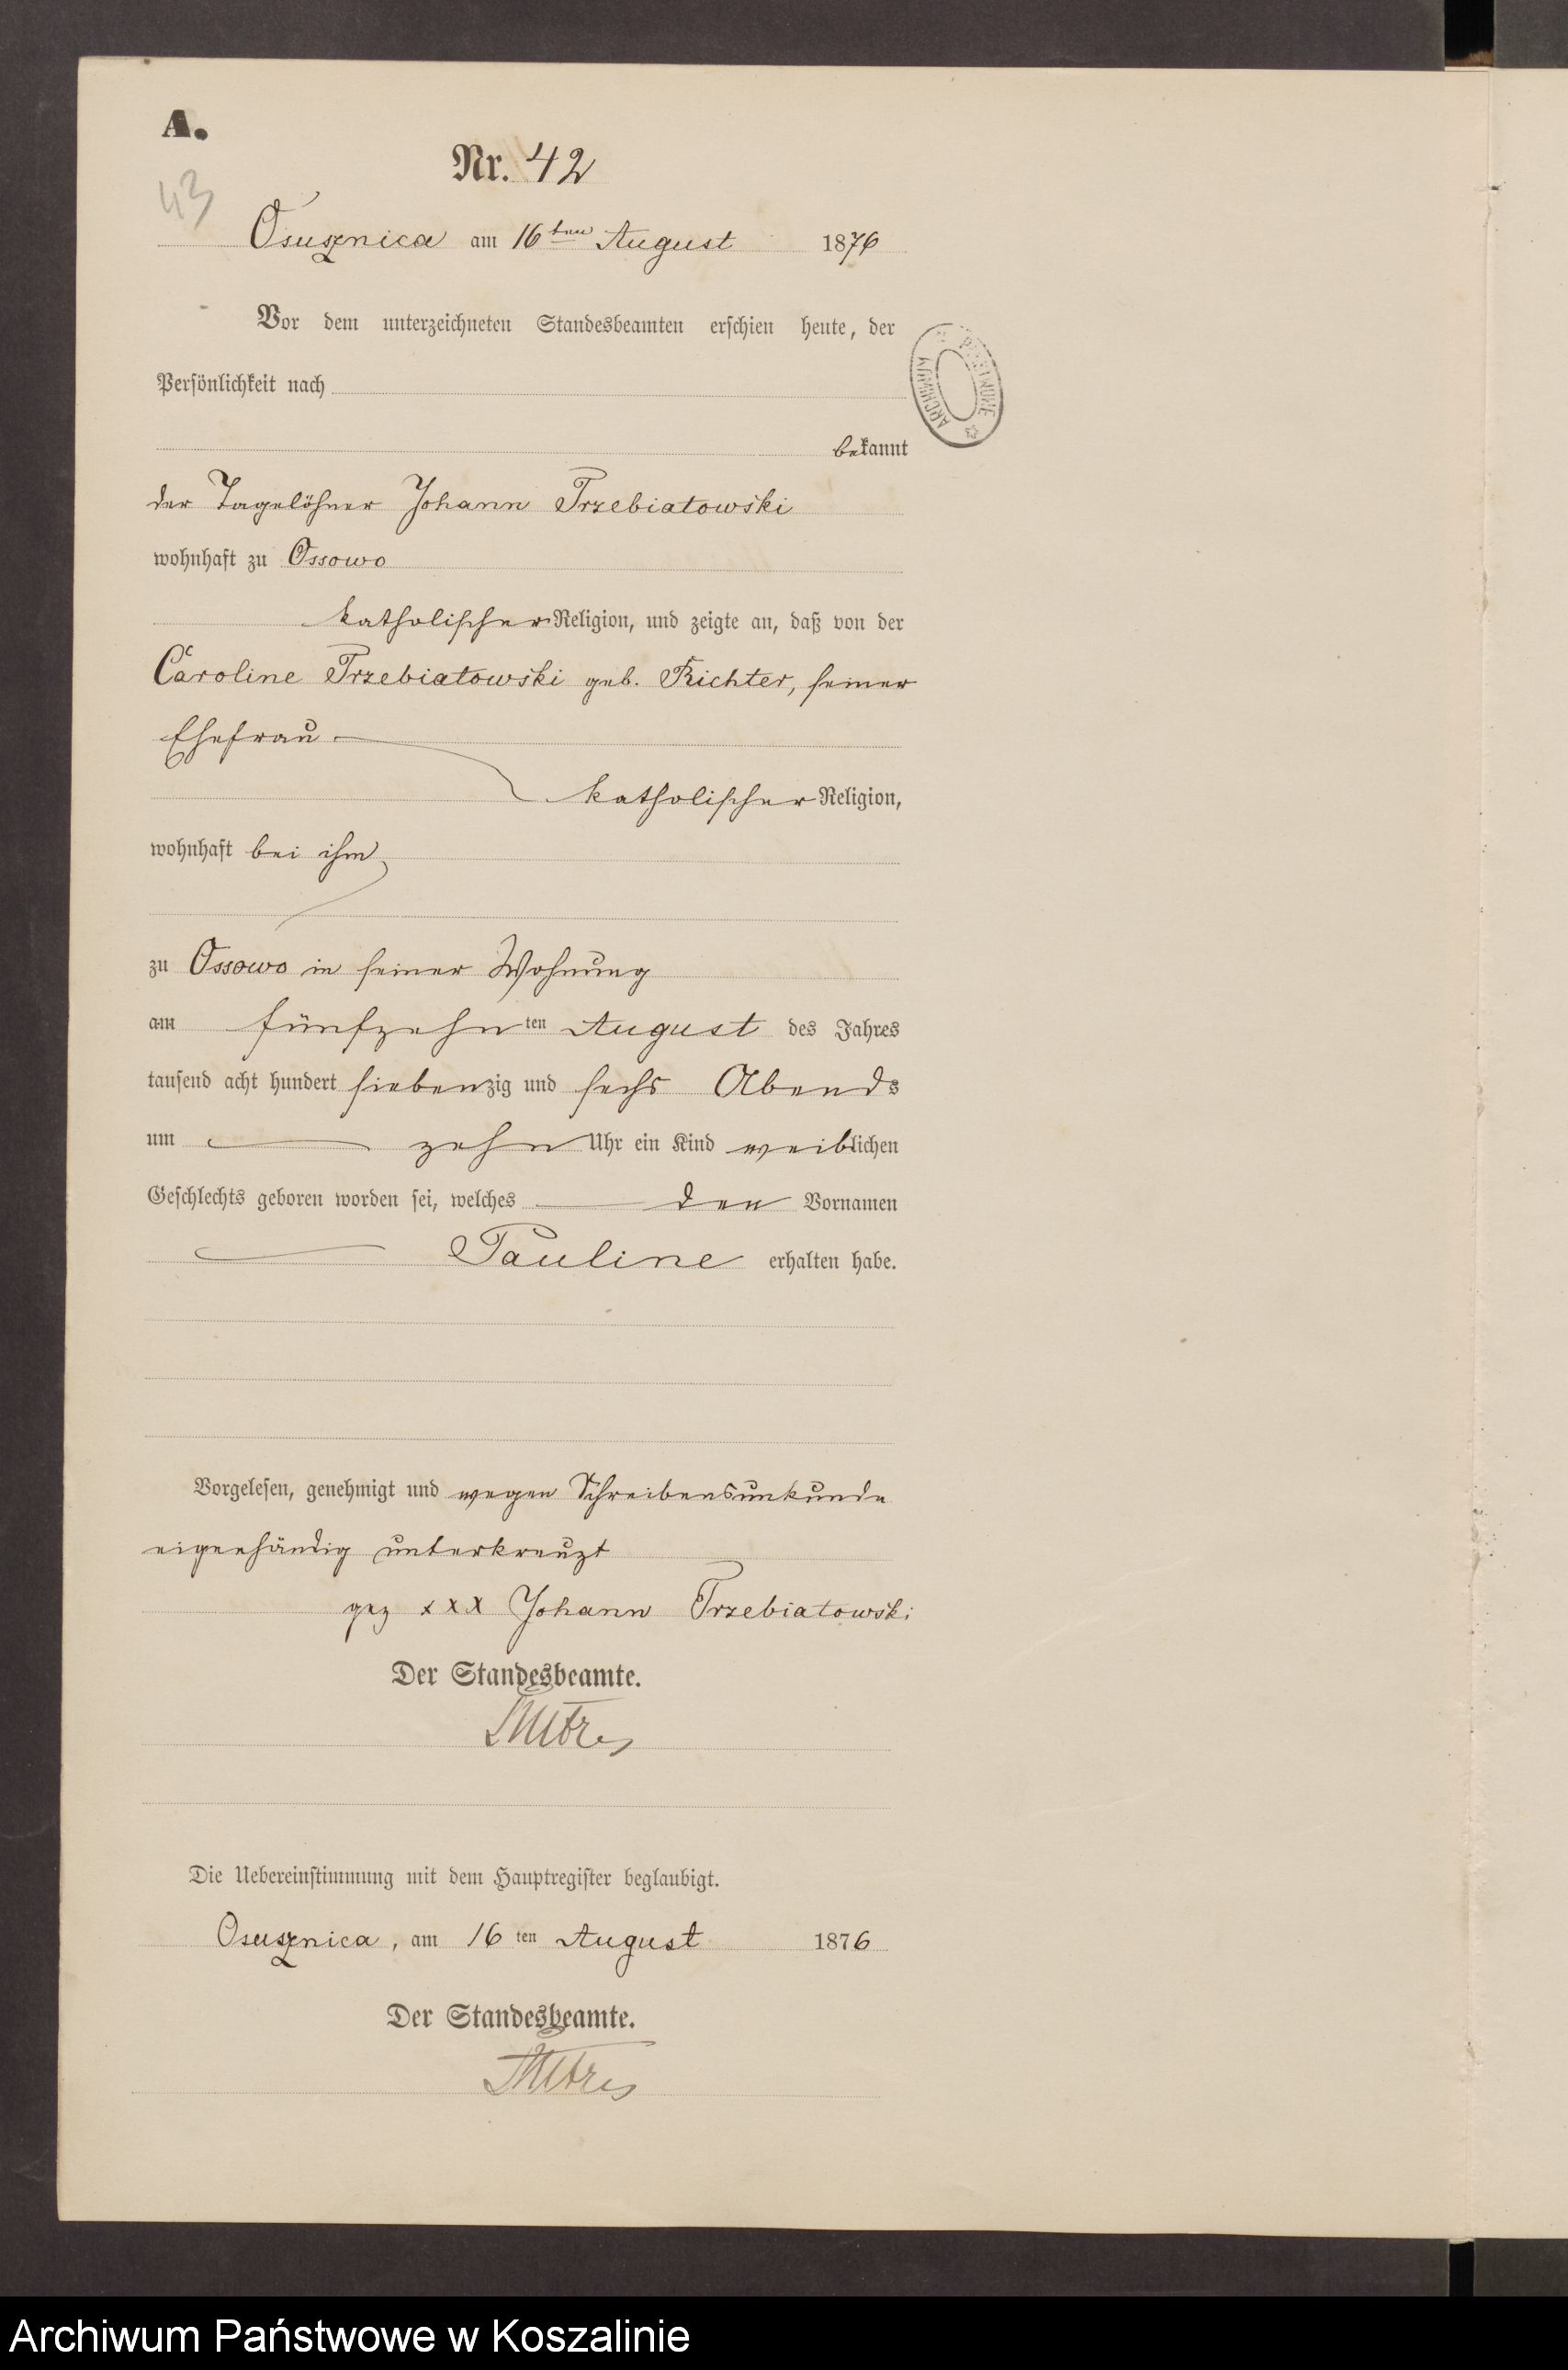 A.
Nr. 42
43
Osusznica am 16ten August 1876
Vor dem unterzeichneten Standesbeamten erschien heute, der
Persönlichkeit nach
bekannt
der Tagelöhner Johann Trzebiatowski
wohnhaft zu Ossowo
katholischer Religion, und zeigte an, daß von der
Caroline Trzebiatowski geb. Richter, seiner
Ehefrau
katholischer Religion,
wohnhaft bei ihm
zu Ossowo in seiner Wohnung
am fünfzehnten August des Jahres
tausend acht hundert siebenzig und sechs Abends
um zehn Uhr ein Kind weiblichen
Geschlechts geboren worden sei, welches den Vornamen
Pauline erhalten habe.
Vorgelesen, genehmigt und wegen Schreibensunkunde
eigenhändig unterkreuzt
gez xxx Johann Trzebiatowski
Der Standesbeamte.
Die Uebereinstimmung mit dem Hauptregister beglaubigt.
Osusznica, am 16ten August 1876
Der Standesbeamte.
Archiwum Państwowe w Koszalinie